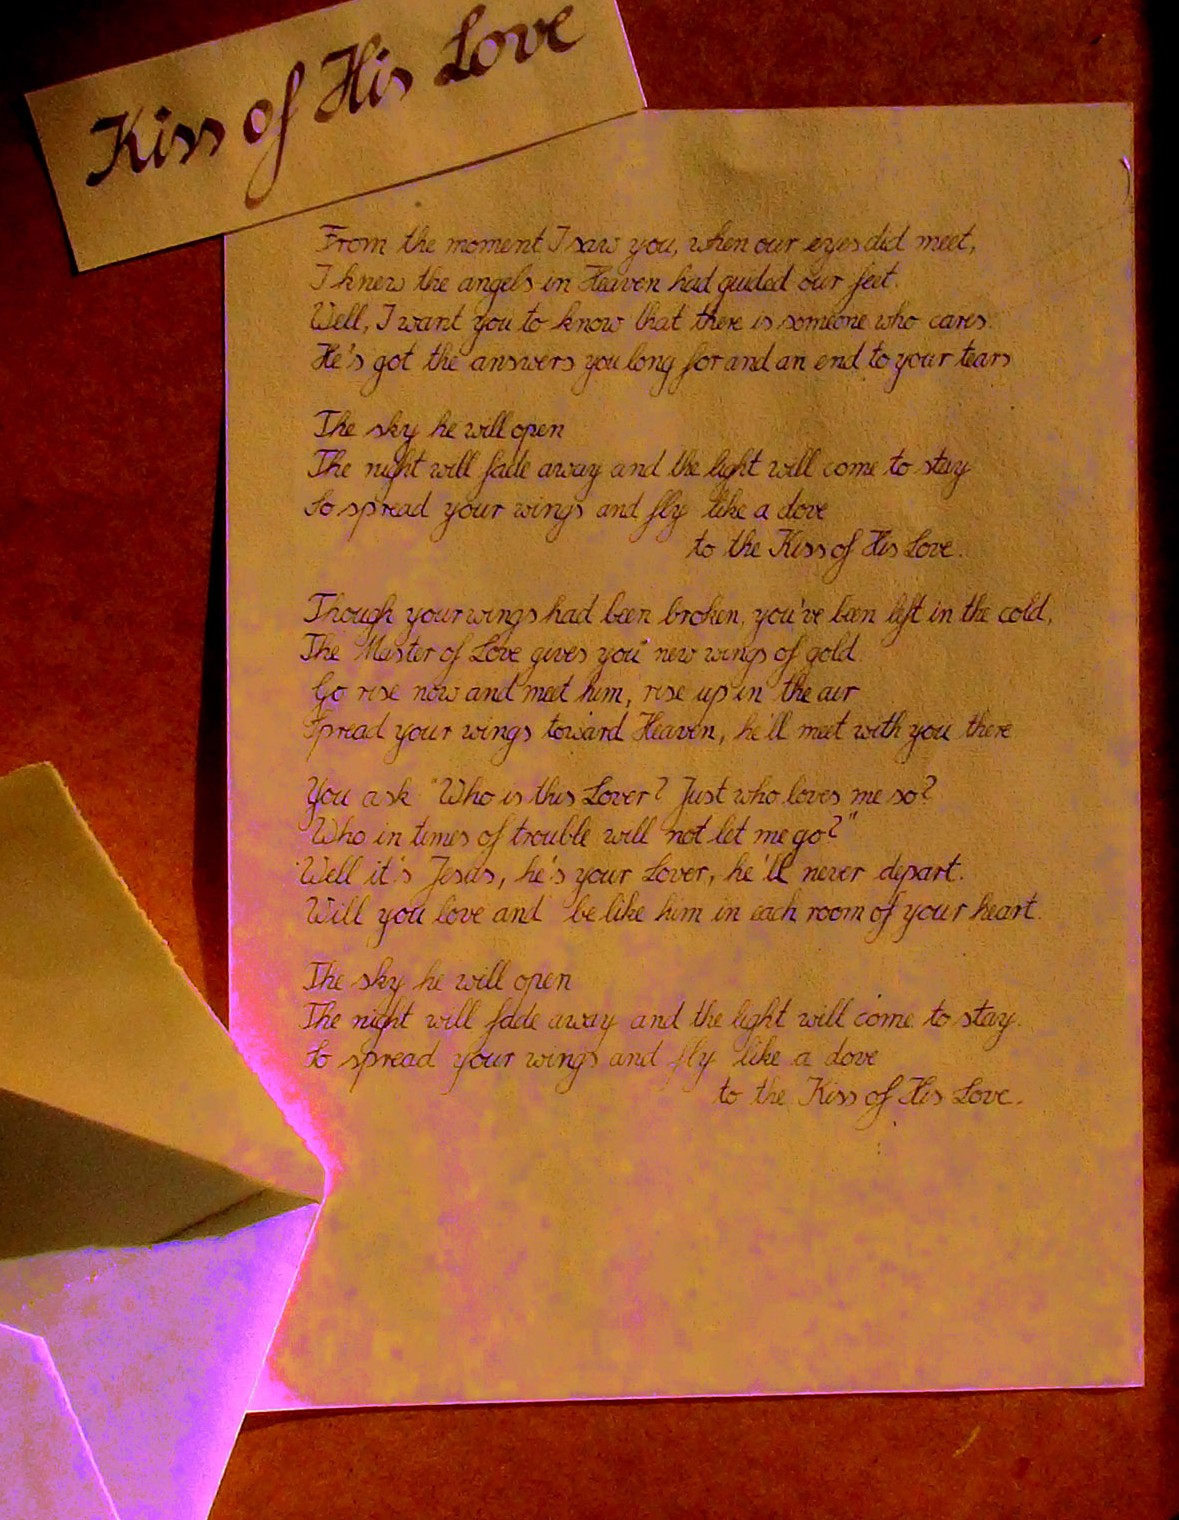 Kiss of His Love
From the moment I saw you, when our eyes did meet,
I knew the angels in Heaven had guided our feet.
Well, I want you to know that there is someone who cares.
He's got the answers you long for and an end to your tears
The sky he will open
The night will fade away and the light will come to stay
So spread your wings and fly like a dove
to the Kiss of His Love.
Though your wings had been broken, you've been left in the cold,
The Master of Love gives you new wings of gold.
Go rise now and meet him, rise up in the air
Spread your wings toward Heaven, he'll meet with you there
You ask "Who is this Lover? Just who loves me so?
Who in times of trouble will not let me go?"
Well it's Jesus, he's your Lover, he'll never depart.
Will you love and be like him in each room of your heart.
The sky he will open
The night will fade away and the light will come to stay.
So spread your wings and fly like a dove
to the Kiss of His Love.